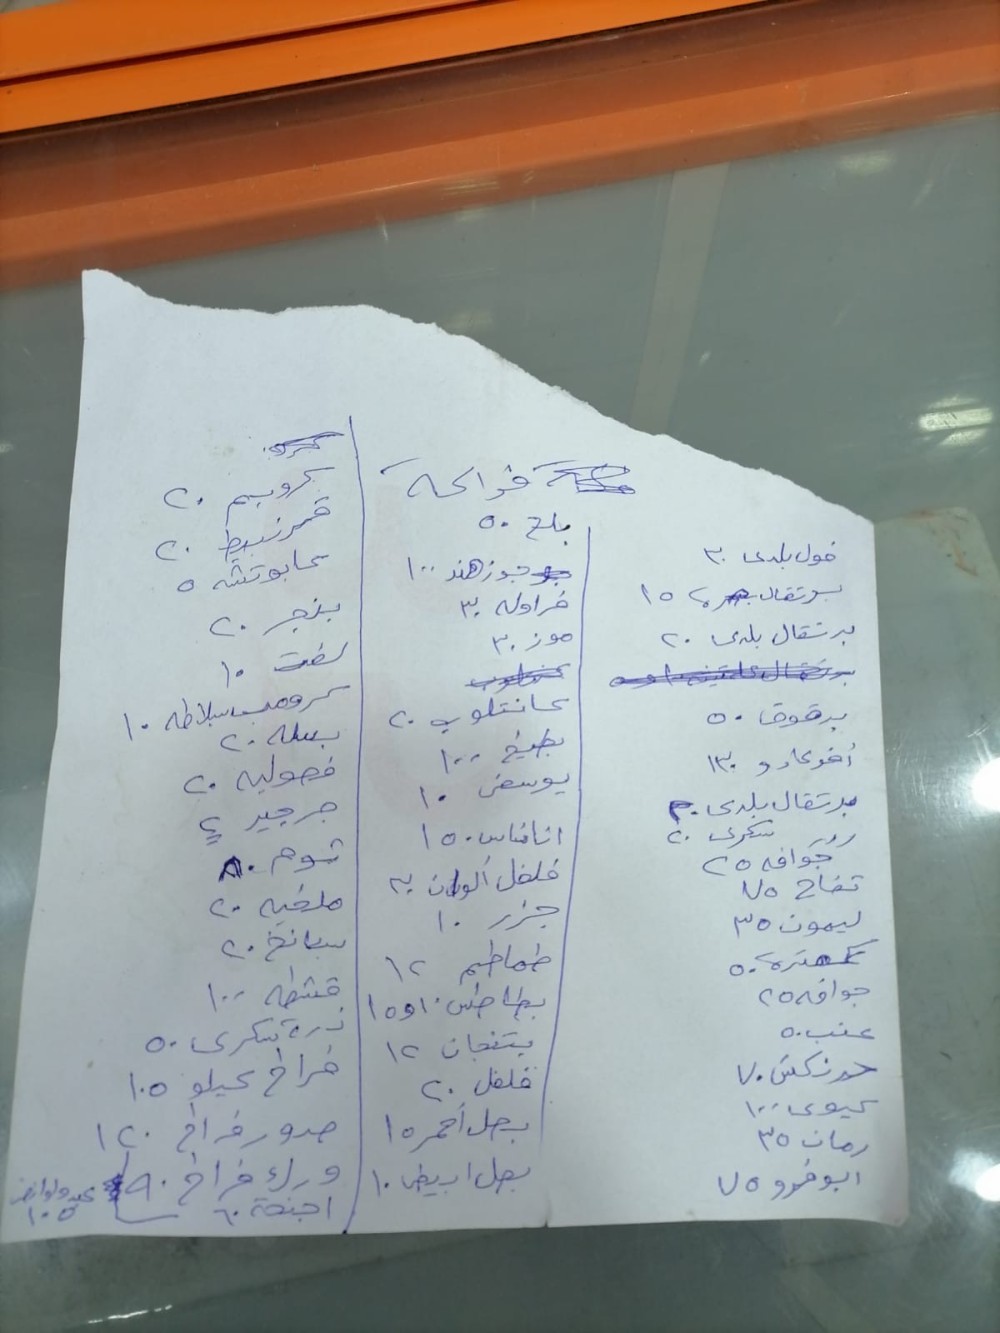 فواكه
فول بلدى ٣٠
برتقال بصره ١٥
برتقال بلدى ٢٠
برقوق ٥٠
أفوكادو ١٣٠
برتقال بلدى
سكرى ٢٠
جوافه ٢٥
تفاح ٧٥
ليمون ٣٥
كمترى ٥٠
جوافه ٢٥
عنب ٥٠
حرنكش ٧٠
كيوى ١٠٠
رمان ٣٥
ابوفروو ٧٥
بلح ٥٠
جوز هند ١٠٠
فراوله ٣٠
موز ٣٠
كانتلوب ٢٠
بطيخ ١٠٠
يوسفى ١٠
اناناس ١٥٠
فلفل ألوان ٣٠
جزر ١٠
طماطم ١٢
بطاطس ١٠ و ١٥
بتنجان ١٢
فلفل ٢٠
بصل أحمر ١٥
بصل ابيض ١٠
كرومب ٢٠
قرنبيط ٢٠
كابوتشه ٥
بنجر ٢٠
لفت ١٠
كرومب سلاطه ١٠
بسله ٢٠
فصوليه ٢٠
جرجير ٤
توم ٨٠
ملخيه ٢٠
سبانخ ٢٠
قشطه ١٠٠
ذرة سكرى ٥٠
فراخ كيلو ١٠٥
صدور فراخ ١٢٠
ورك فراخ ٩٠
اجنحة ٦٠